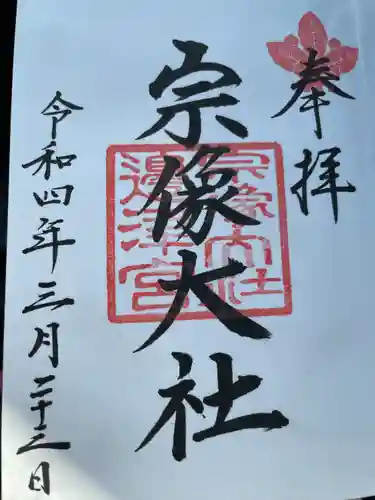 奉拝
宗像大社
宗像大社
邊津宮
令和四年三月二十三日